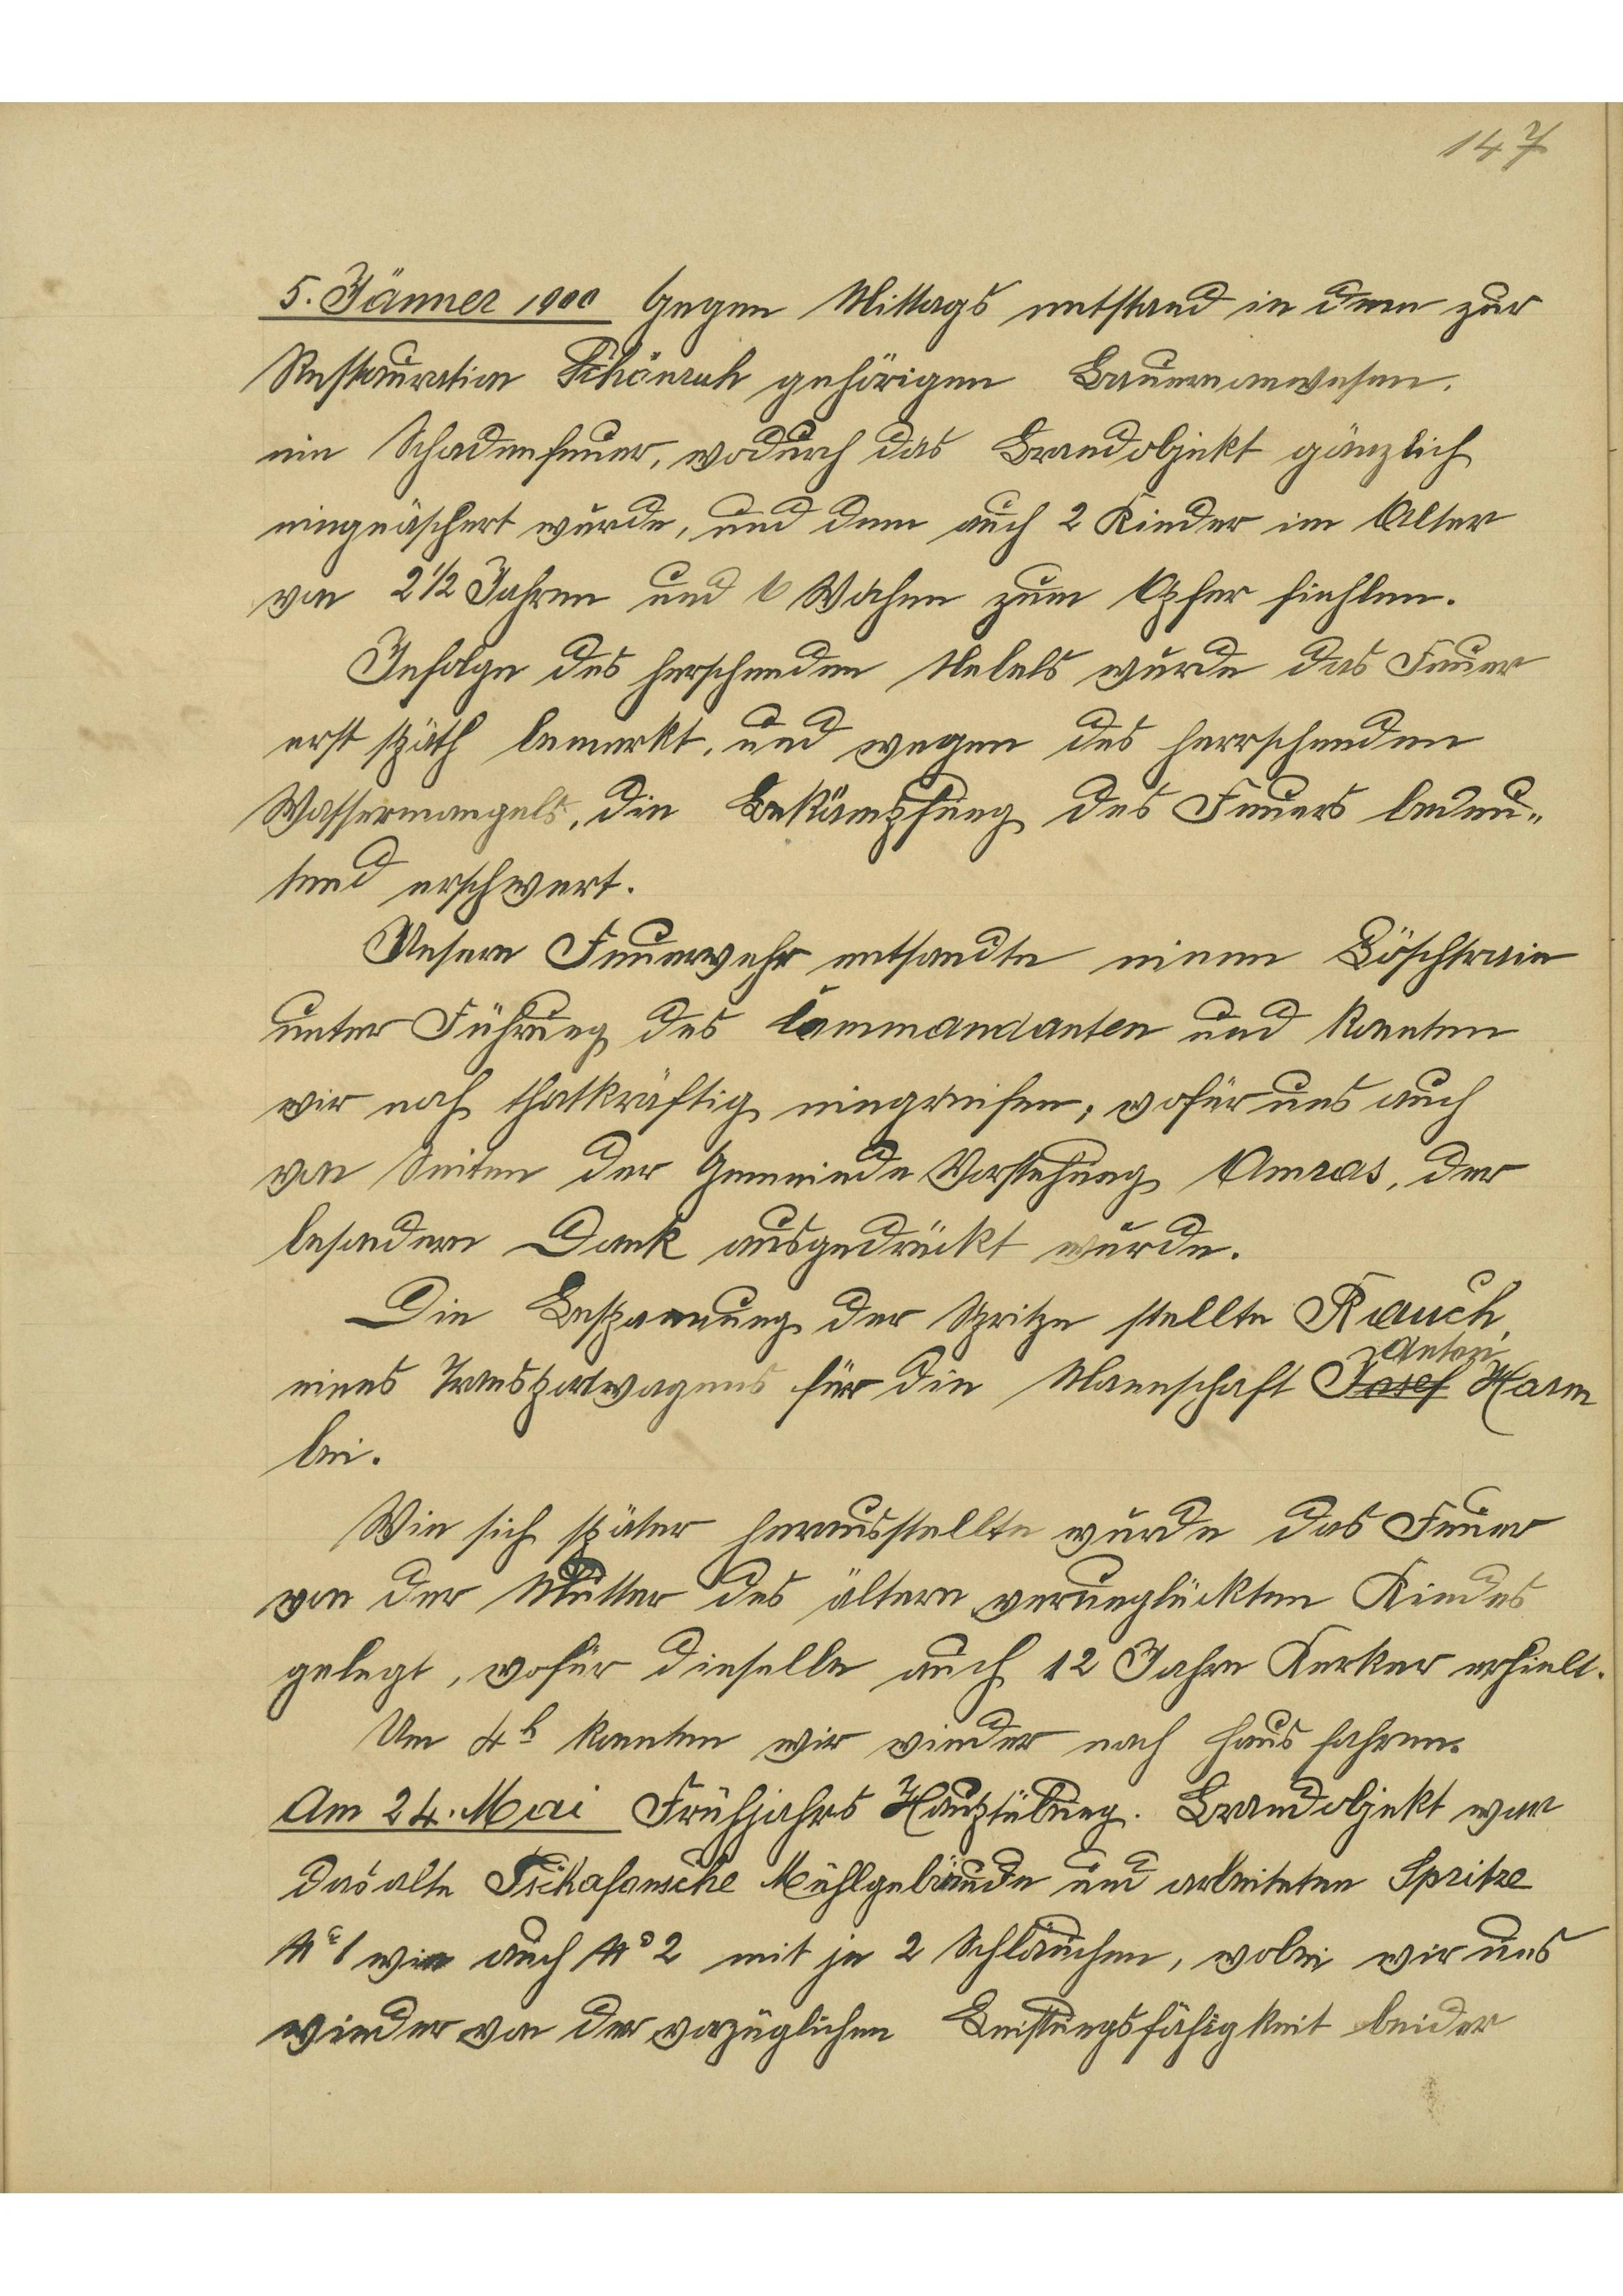 147
5. Jänner 1900 Gegen Mittags entstand in dem zur
Restauration Schönruh gehörigen Bauernanwesen.
ein Schadenfeuer, wodurch das Brandobjekt gänzlich
eingeäschert wurde, und dem auch 2 Kinder im Alter
von 2½ Jahren und 6 Wochen zum Opfer fiehlen.
Infolge des herschenden Nebels wurde das Feuer
erst späth bemerkt, und wegen des herrschenden
Wassermangels, die Bekämpfung des Feuers bedeu„
tend erschwert.
Unsere Feuerwehr entsandte einen Löschtrain
unter Führung des Commandanten und konnten
wir noch thatkräftig eingreifen, wofür uns auch
von Seiten der Gemeinde Vorstehung Amras, der
besondere Dank ausgedrückt wurde.
Die Bespannung der Spritze stellte Rauch,
Anton
eines Transportwagens für die Mannschaft Josef Harm
bei.
Wie sich später herausstellte wurde das Feuer
von der Mutter des ältern verunglückten Kindes
gelegt, wofür dieselbe auch 12 Jahre Kerker erhielt.
Um 4h konnten wir wieder nach Haus fahren.
Am 24. Mai Frühjahrs Hauptübung. Brandobjekt war
das alte Mühlgebäude und arbeiteten Spritze
No 1 wie auch No 2 mit je 2 Schläuchen, wobei wir uns
wieder von der vorzüglichen Leistungsfähigkeit beider